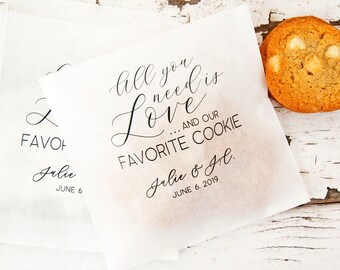 All you
need is
Love
...AND OUR
FAVORITE COOKIE
Julie & Jol.
JUNE 6, 2019
L
FAVOR
Julie
JUNE 6